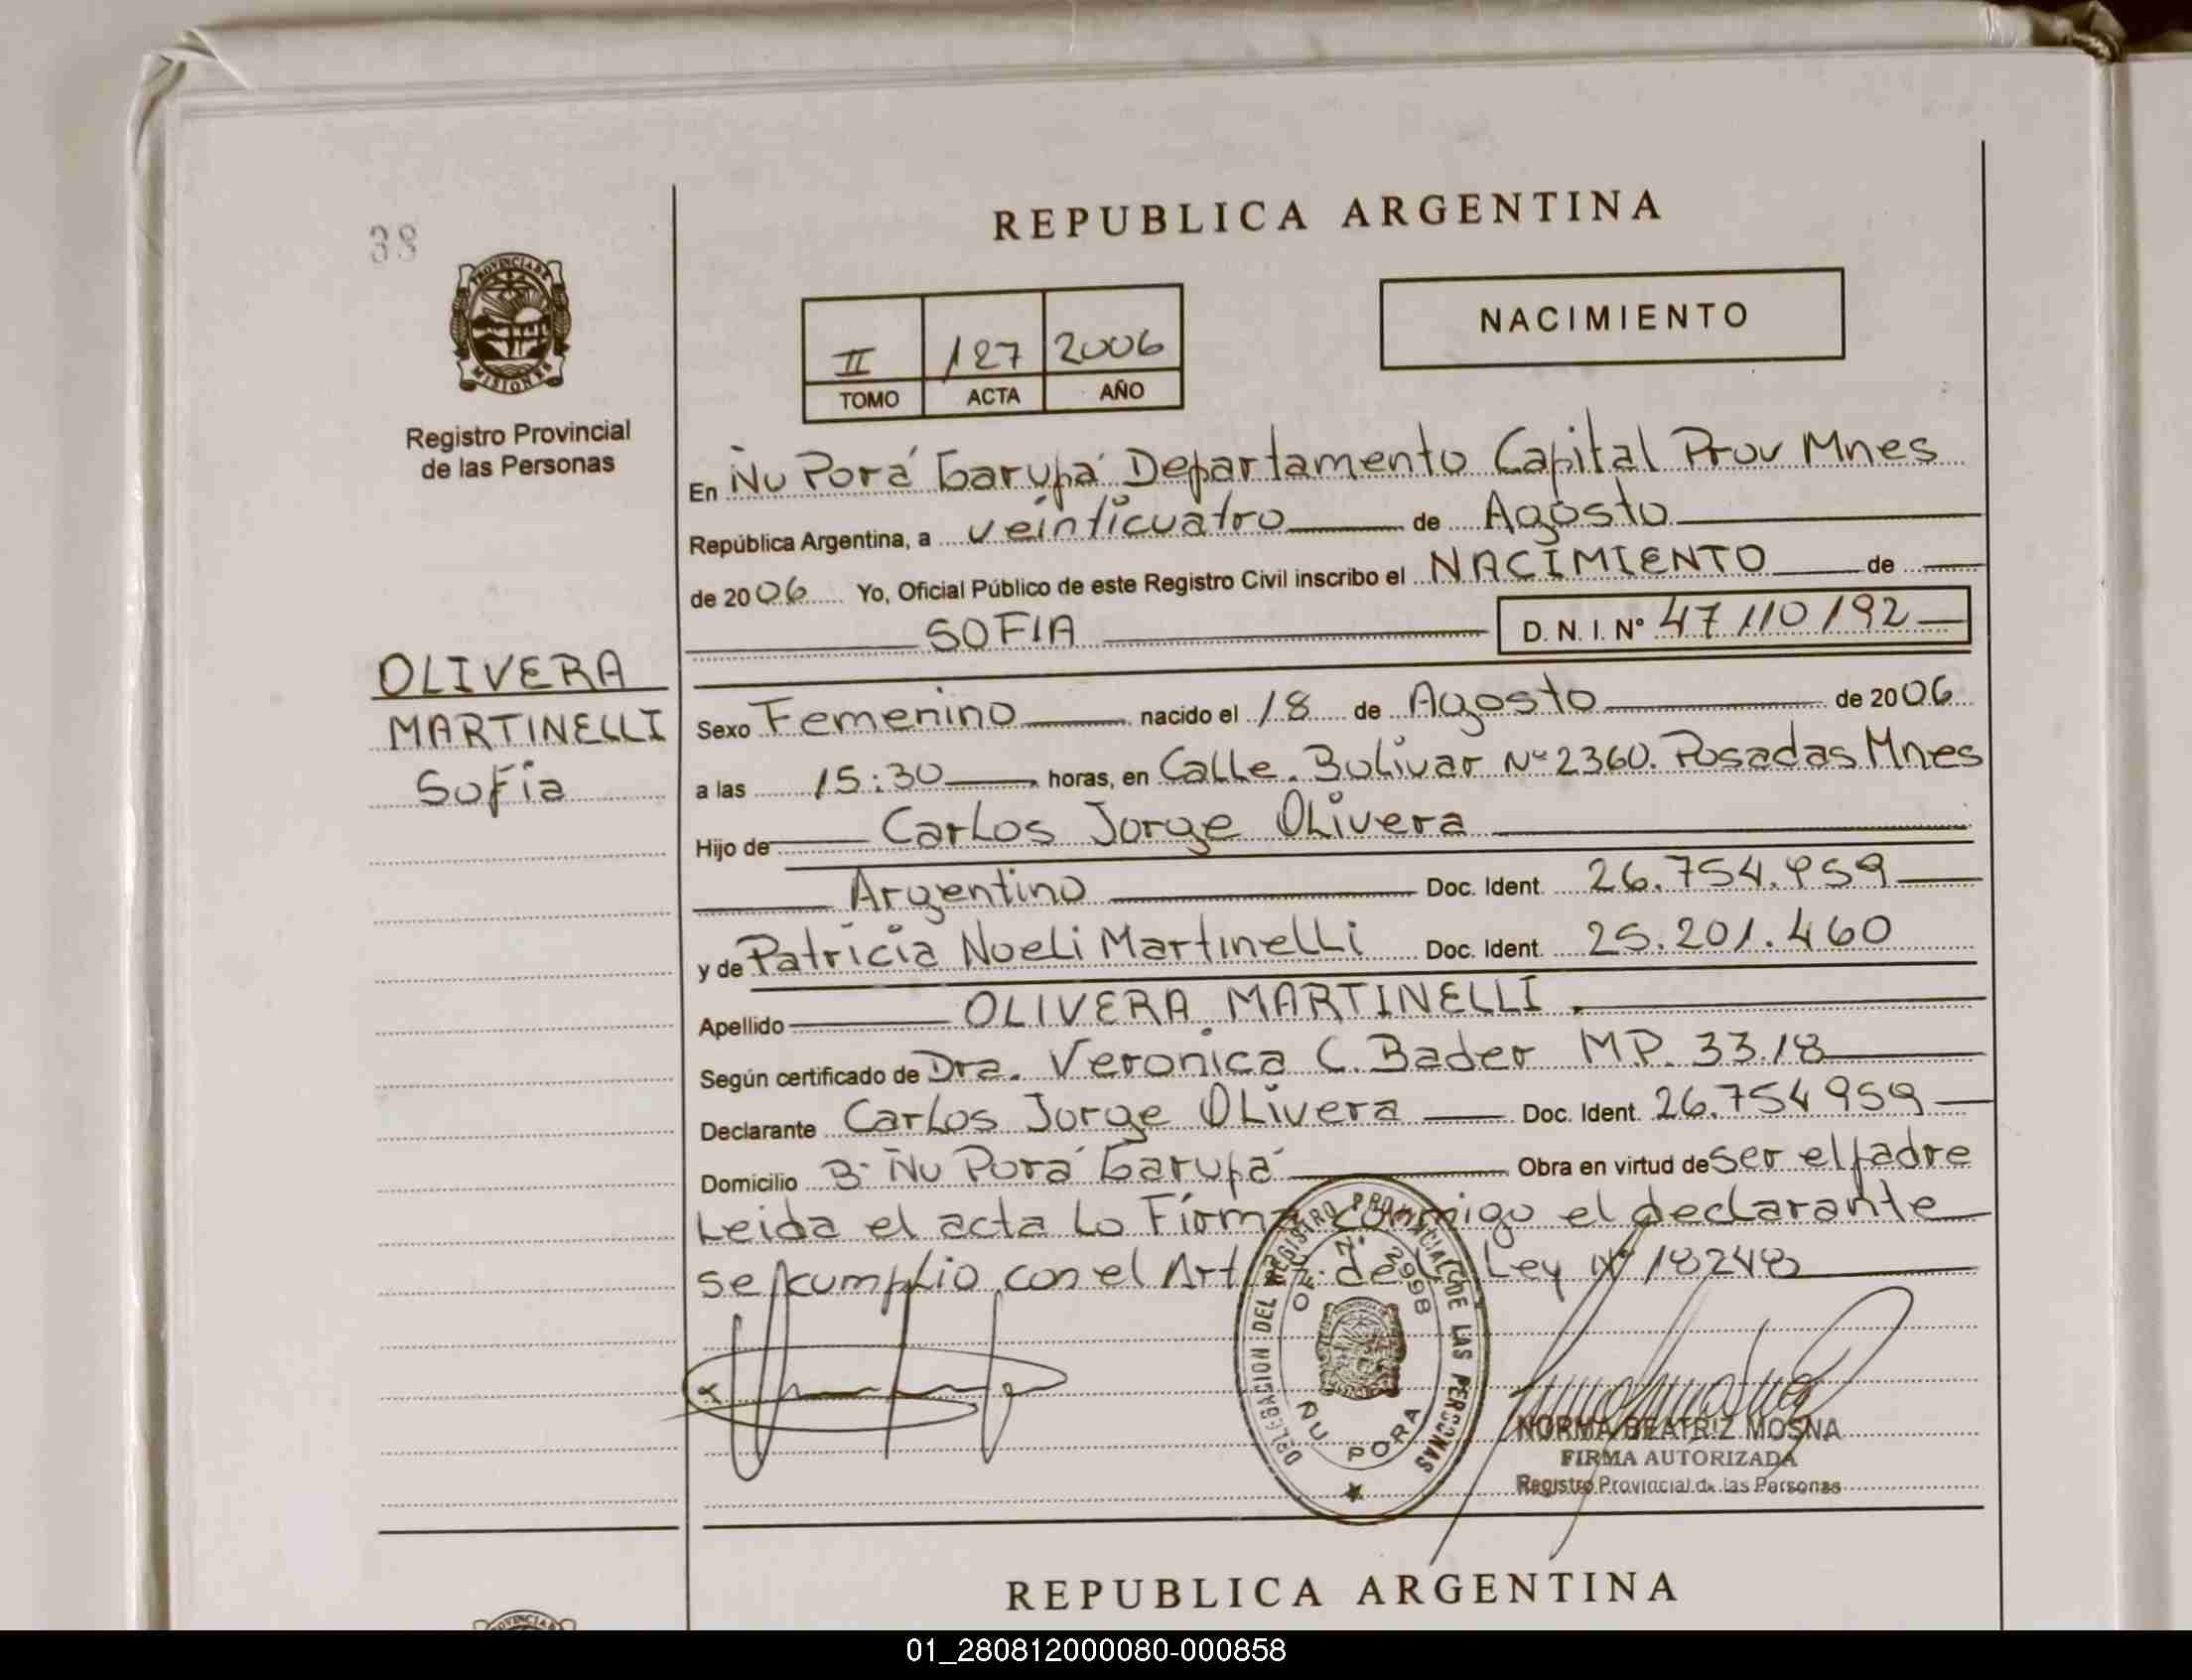 38
PROVINCIA DE
MISIONES
Registro Provincial
de las Personas
OLIVERA
MARTINELLI
Sofia
REPUBLICA ARGENTINA
II 127 2006
TOMO ACTA AÑO
NACIMIENTO
En Ñu Porá Garupá Departamento Capital Prov Mnes
República Argentina, a veinticuatro de Agosto
de 2006 Yo, Oficial Público de este Registro Civil inscribo el NACIMIENTO de
SOFIA D. N. I. Nº 47110192
Sexo Femenino nacido el 18 de Agosto de 2006
a las 15:30 horas, en Calle. Bolivar Nº 2360. Posadas Mnes
Hijo de Carlos Jorge Olivera
Argentino Doc. Ident. 26.754.959
y de Patricia Noeli Martinelli Doc. Ident. 25.201.460
Apellido OLIVERA MARTINELLI.
Según certificado de Dra. Veronica C. Bader M.P. 3318
Declarante Carlos Jorge Olivera Doc. Ident. 26.754959
Domicilio Bº Ñu Porá Garupá Obra en virtud de ser el padre
Leida el acta lo Firma conmigo el declarante
se cumplio con el Art de Ley Nº 18248
DELEGACION DEL REGISTRO PROVINCIAL DE LAS PERSONAS
OF. Nº 2998
ÑU PORA
NORMA BEATRIZ MOSNA
FIRMA AUTORIZADA
Registro Provincial de las Personas
REPUBLICA ARGENTINA
01_280812000080-000858